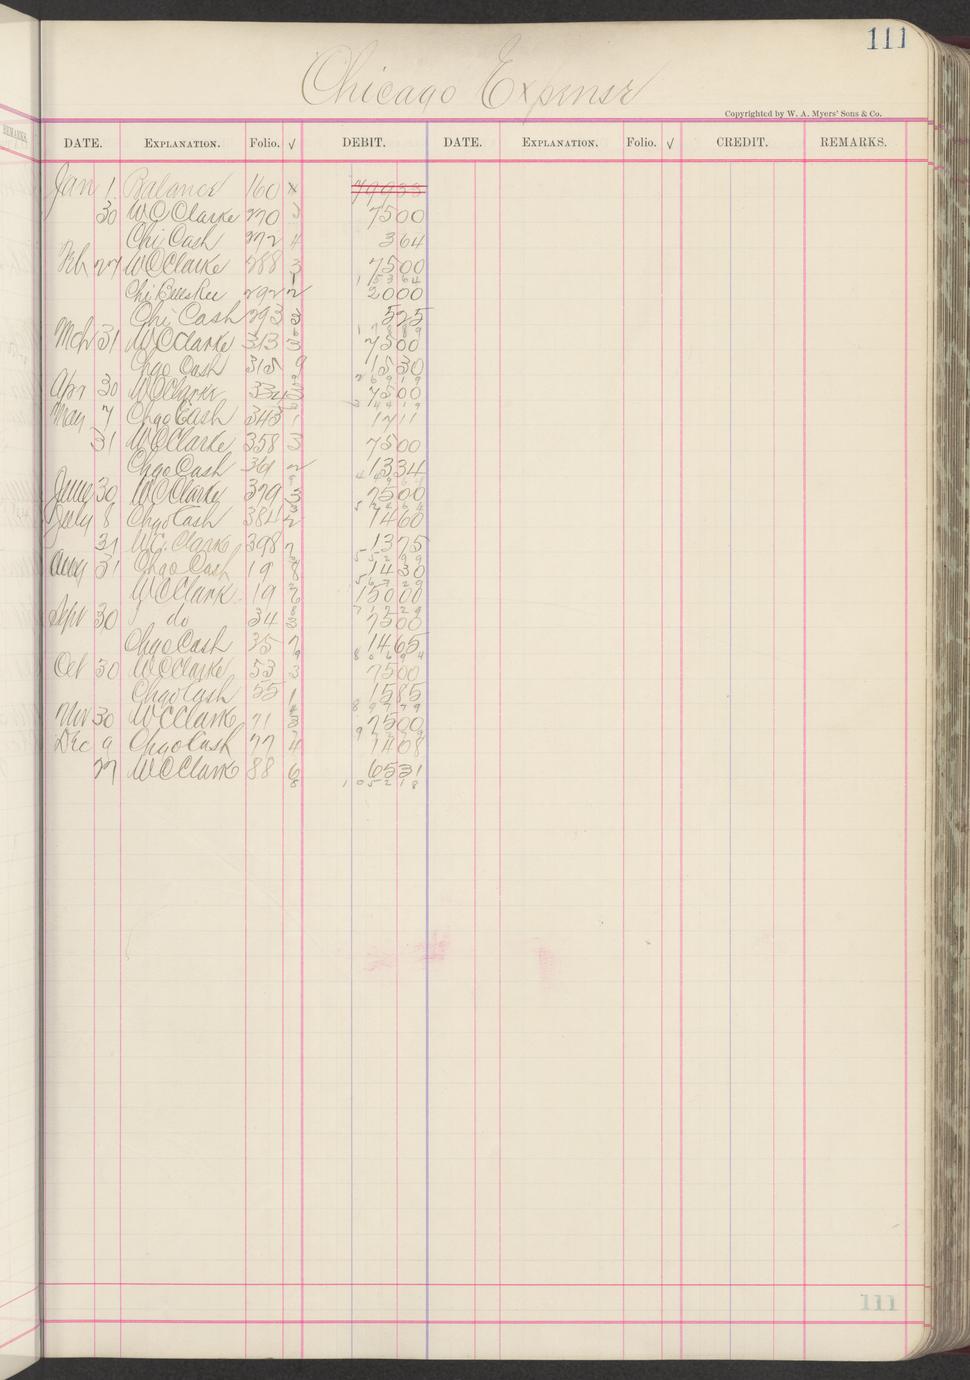 111
Chicago Expense
Copyrighted by W. A. Myers' Sons & Co.
DATE. EXPLANATION. Folio. √ DEBIT. DATE. EXPLANATION. Folio. √ CREDIT. REMARKS.
Jan 1 Balance 160 x 79933
30 W C Clarke 270 3 7500
Chi Cash 272 4 364
Feb 27 W C Clarke 288 3 7500
1 15364
Chi 292 2 2000
Chi Cash 293 3 525
6 17889
Mch 31 W C Clarke 313 3 7500
Chgo Cash 315 9 1530
26919
Apr 30 W C Clarke 334 3 7500
34419
May 7 Chgo Cash 343 1 1711
31 W C Clarke 358 3 7500
Chgo Cash 361 2 1334
44964
June 30 W C Clarke 379 3 7500
52464
July 8 Chgo Cash 384 2 1460
31 W.C. Clark 398 2 1375
55299
Aug 31 Chgo Cash 19 8 1430
56729
W C Clark 19 2 15000
8 71729
Sept 30 do 34 3 7500
Chgo Cash 35 7 1465
9 80694
Oct 30 W C Clarke 53 3 7500
Chgo Cash 55 1 1585
89779
Nov 30 W C Clark 71 3 7500
97279
Dec 9 Chgo Cash 77 4 1408
27 W C Clark 88 6 6531
8 105218
111
REMARKS.